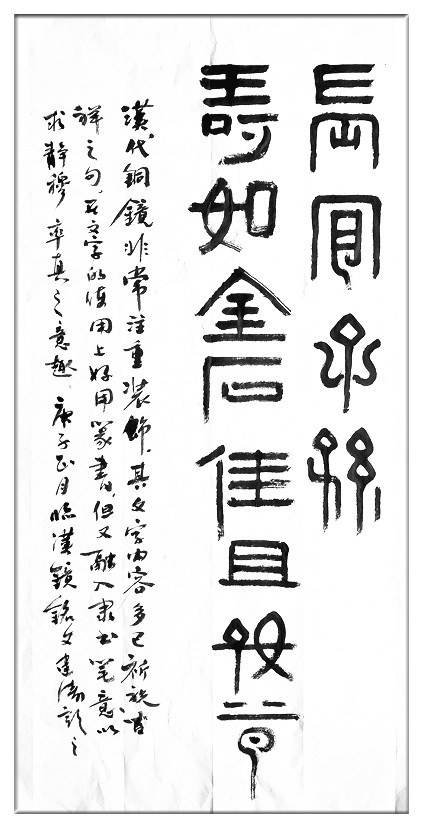 長宜子孫
壽如金石佳且好兮
漢代銅鏡非常注重裝飾，其文字内容多已祈祝吉
祥之句，在文字的使用上好用篆書，但又融入隶书笔意以
求靜穆率真之意趣。庚子正月臨漢鏡銘文建